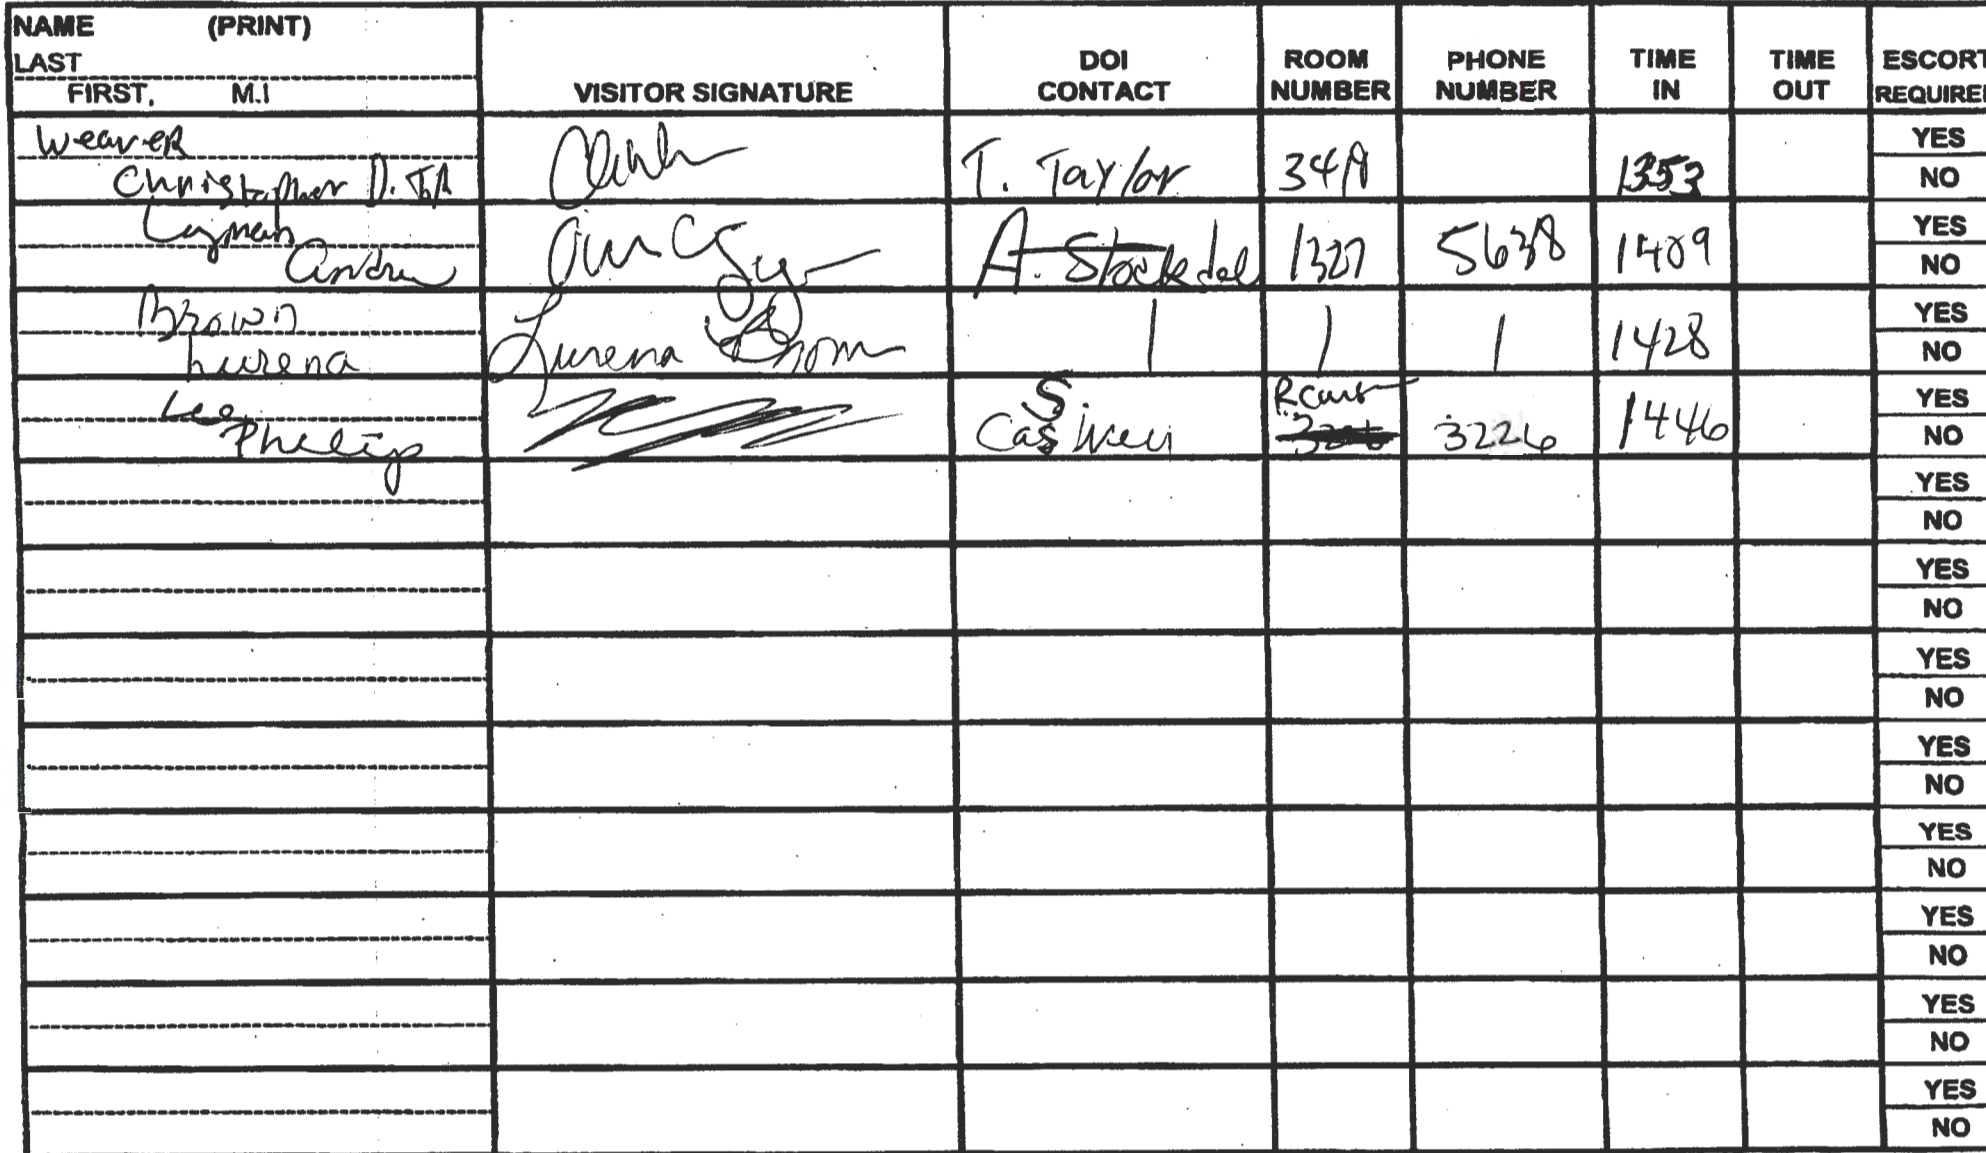 NAME (PRINT)
LAST
FIRST, M.I
VISITOR SIGNATURE
DOI CONTACT
ROOM NUMBER
PHONE NUMBER
TIME IN
TIME OUT
ESCORT REQUIRE
Weaver
Christopher D.
T. Taylor
1353
YES
NO
Andrew
A. Stockdale
1327
5638
1409
YES
NO
Brown
Lurena
Lurena Brown
1
1
1
1428
YES
NO
Lee
Philip
S.
3226
1446
YES
NO
YES
NO
YES
NO
YES
NO
YES
NO
YES
NO
YES
NO
YES
NO
YES
NO